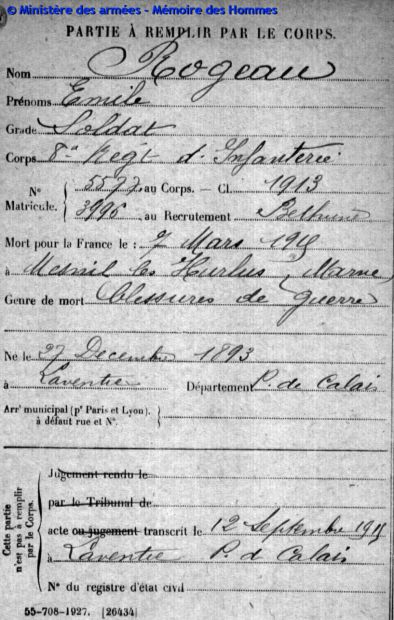 © Ministère des armées - Mémoire des Hommes
PARTIE À REMPLIR PAR LE CORPS.
Nom Rogeau
Prénoms Emile
Grade Soldat
Corps 8e Régt d'Infanterie
N° 5577 au Corps. — Cl. 1913
Matricule. 3996 au Recrutement Béthune
Mort pour la France le : 7 Mars 1915
à Mesnil les Hurlus, Marne
Genre de mort blessures de guerre
Né le 27 Décembre 1893
à Laventie Département P. de Calais
Arrt municipal (pr Paris et Lyon),
à défaut rue et N°.
Cette partie
n'est pas à remplir
par le Corps.
Jugement rendu le
par le Tribunal de
acte ou jugement transcrit le 12 Septembre 1915
à Laventie P. d Calais
N° du registre d'état civil
55-708-1927. [26434]